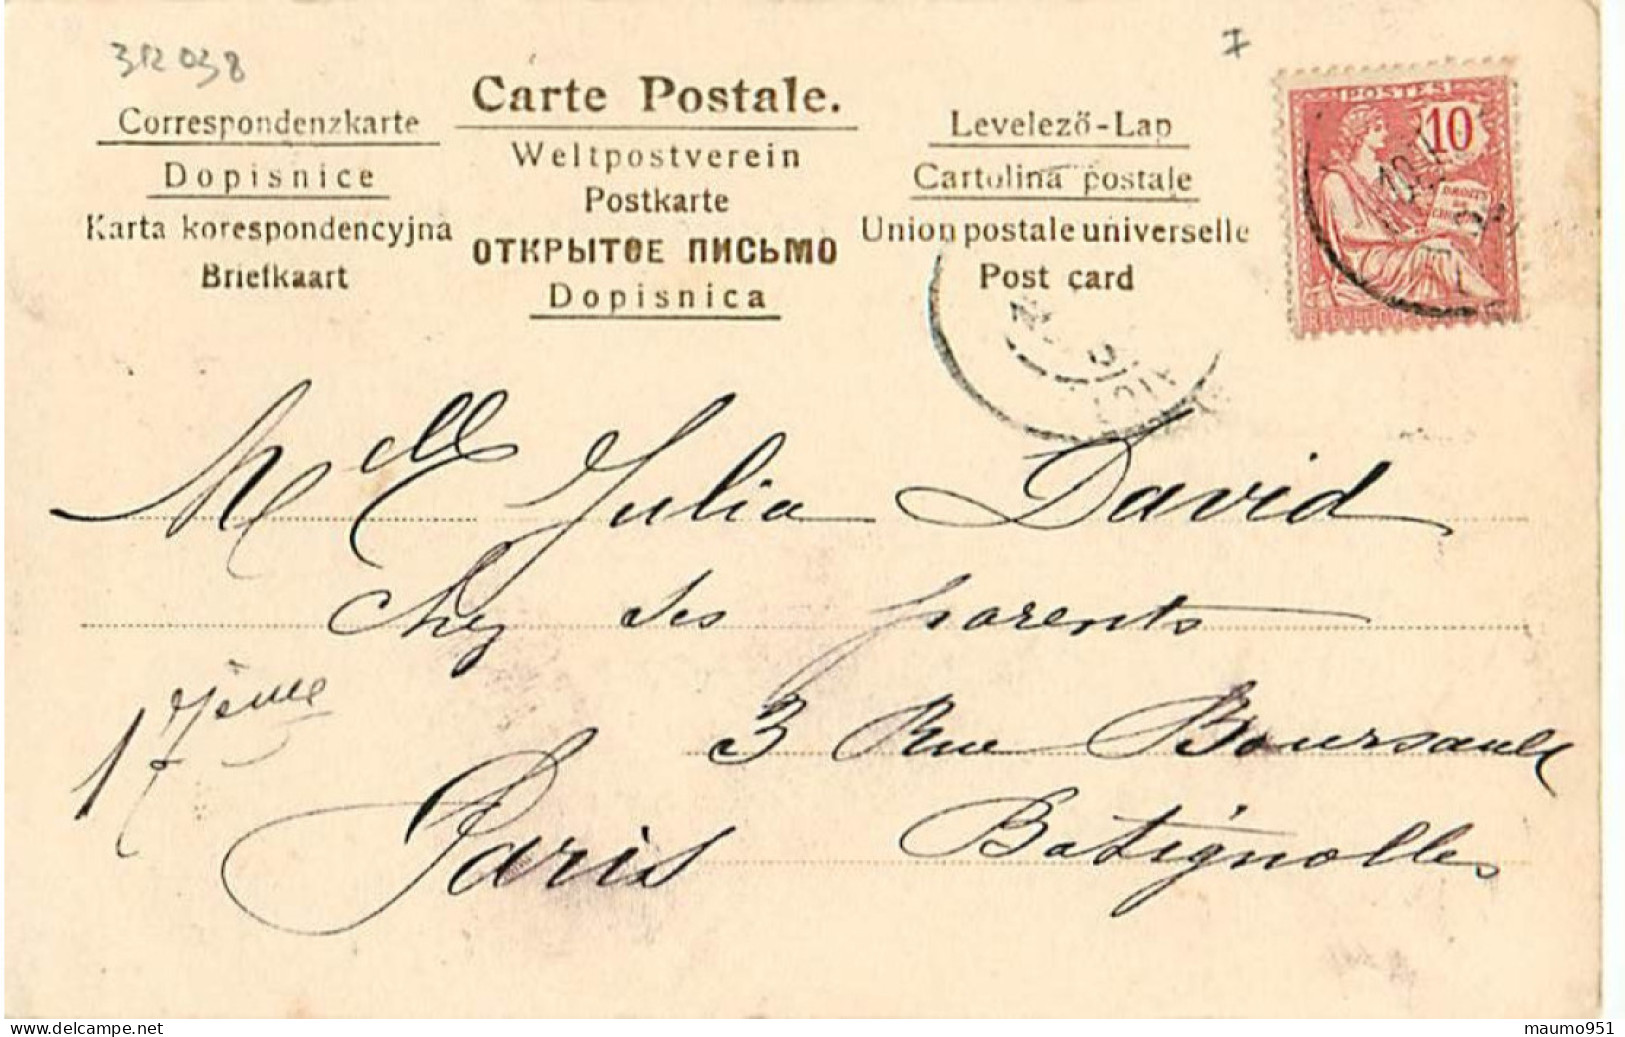 312 038
Carte Postale.
Correspondenzkarte
Dopisnice
Karta korespondencyjna
Briefkaart
Weltpostverein
Postkarte
ОТКРЫТОЕ ПИСЬМО
Dopisnica
Levelező-Lap
Cartolina postale
Union postale universelle
Post card
POSTES
10
DROITS
DE
Melle Julia David
chez ses parents
3 Rue Boursault
17ème
Paris
Batignolles
delcampe.net
maumo951